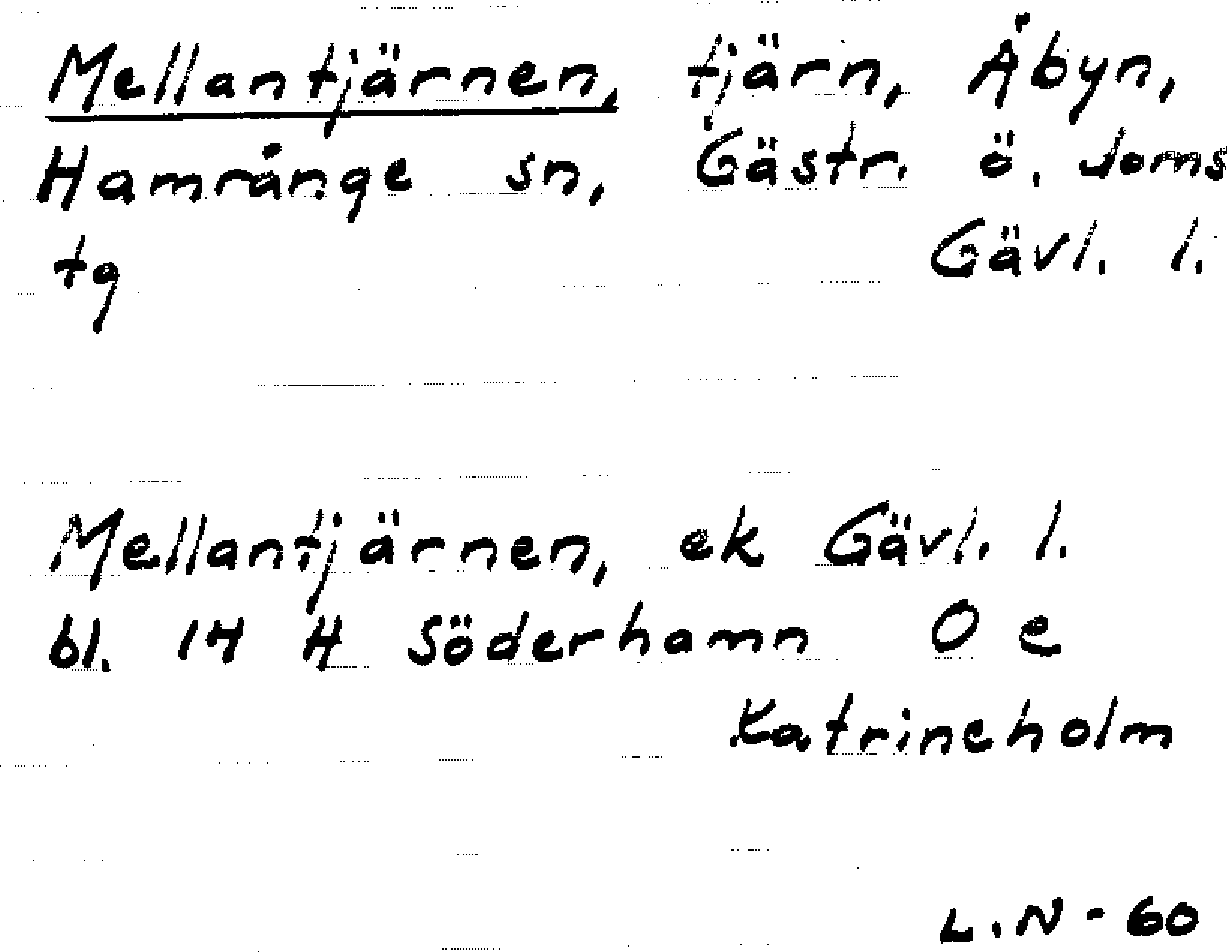 Mellantjärnen, tjärn, Åbyn,
Hamrånge sn, Gästr. ö. doms
tg Gävl. l.
Mellantjärnen, ek Gävl. l.
bl. 14 H Söderhamn 0 e
Katrineholm
L.N-60